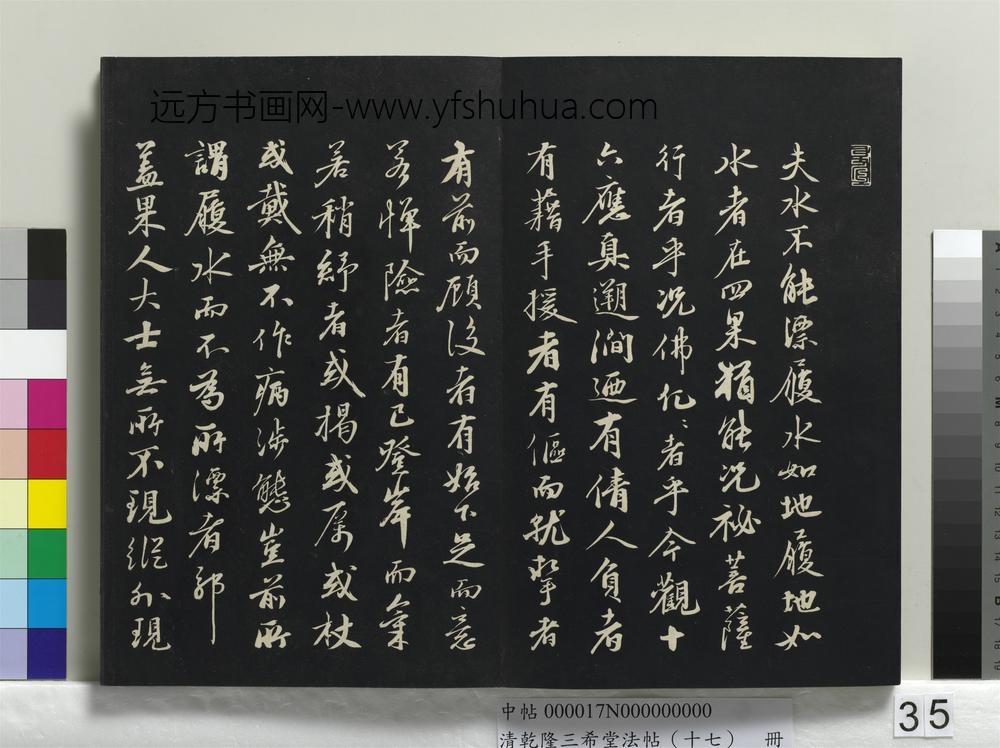 远方书画网-www.yfshuhua.com
夫水不能漂履水如地履地如
水者在四果猶能況祕菩薩
行者乎況佛化〻者乎今觀十
六應真遡澗迺有倩人負者
有藉手援者有傴而就挈者
有前而顧後者有始下足而意
若憚險者有已登岸而氣
若稍紓者或揭或厲或杖
或戴無不作病涉態豈前所
謂履水而不為所漂者邪
蓋果人大士無所不現縱外現
35
中帖 000017N000000000
清乾隆三希堂法帖（十七） 冊